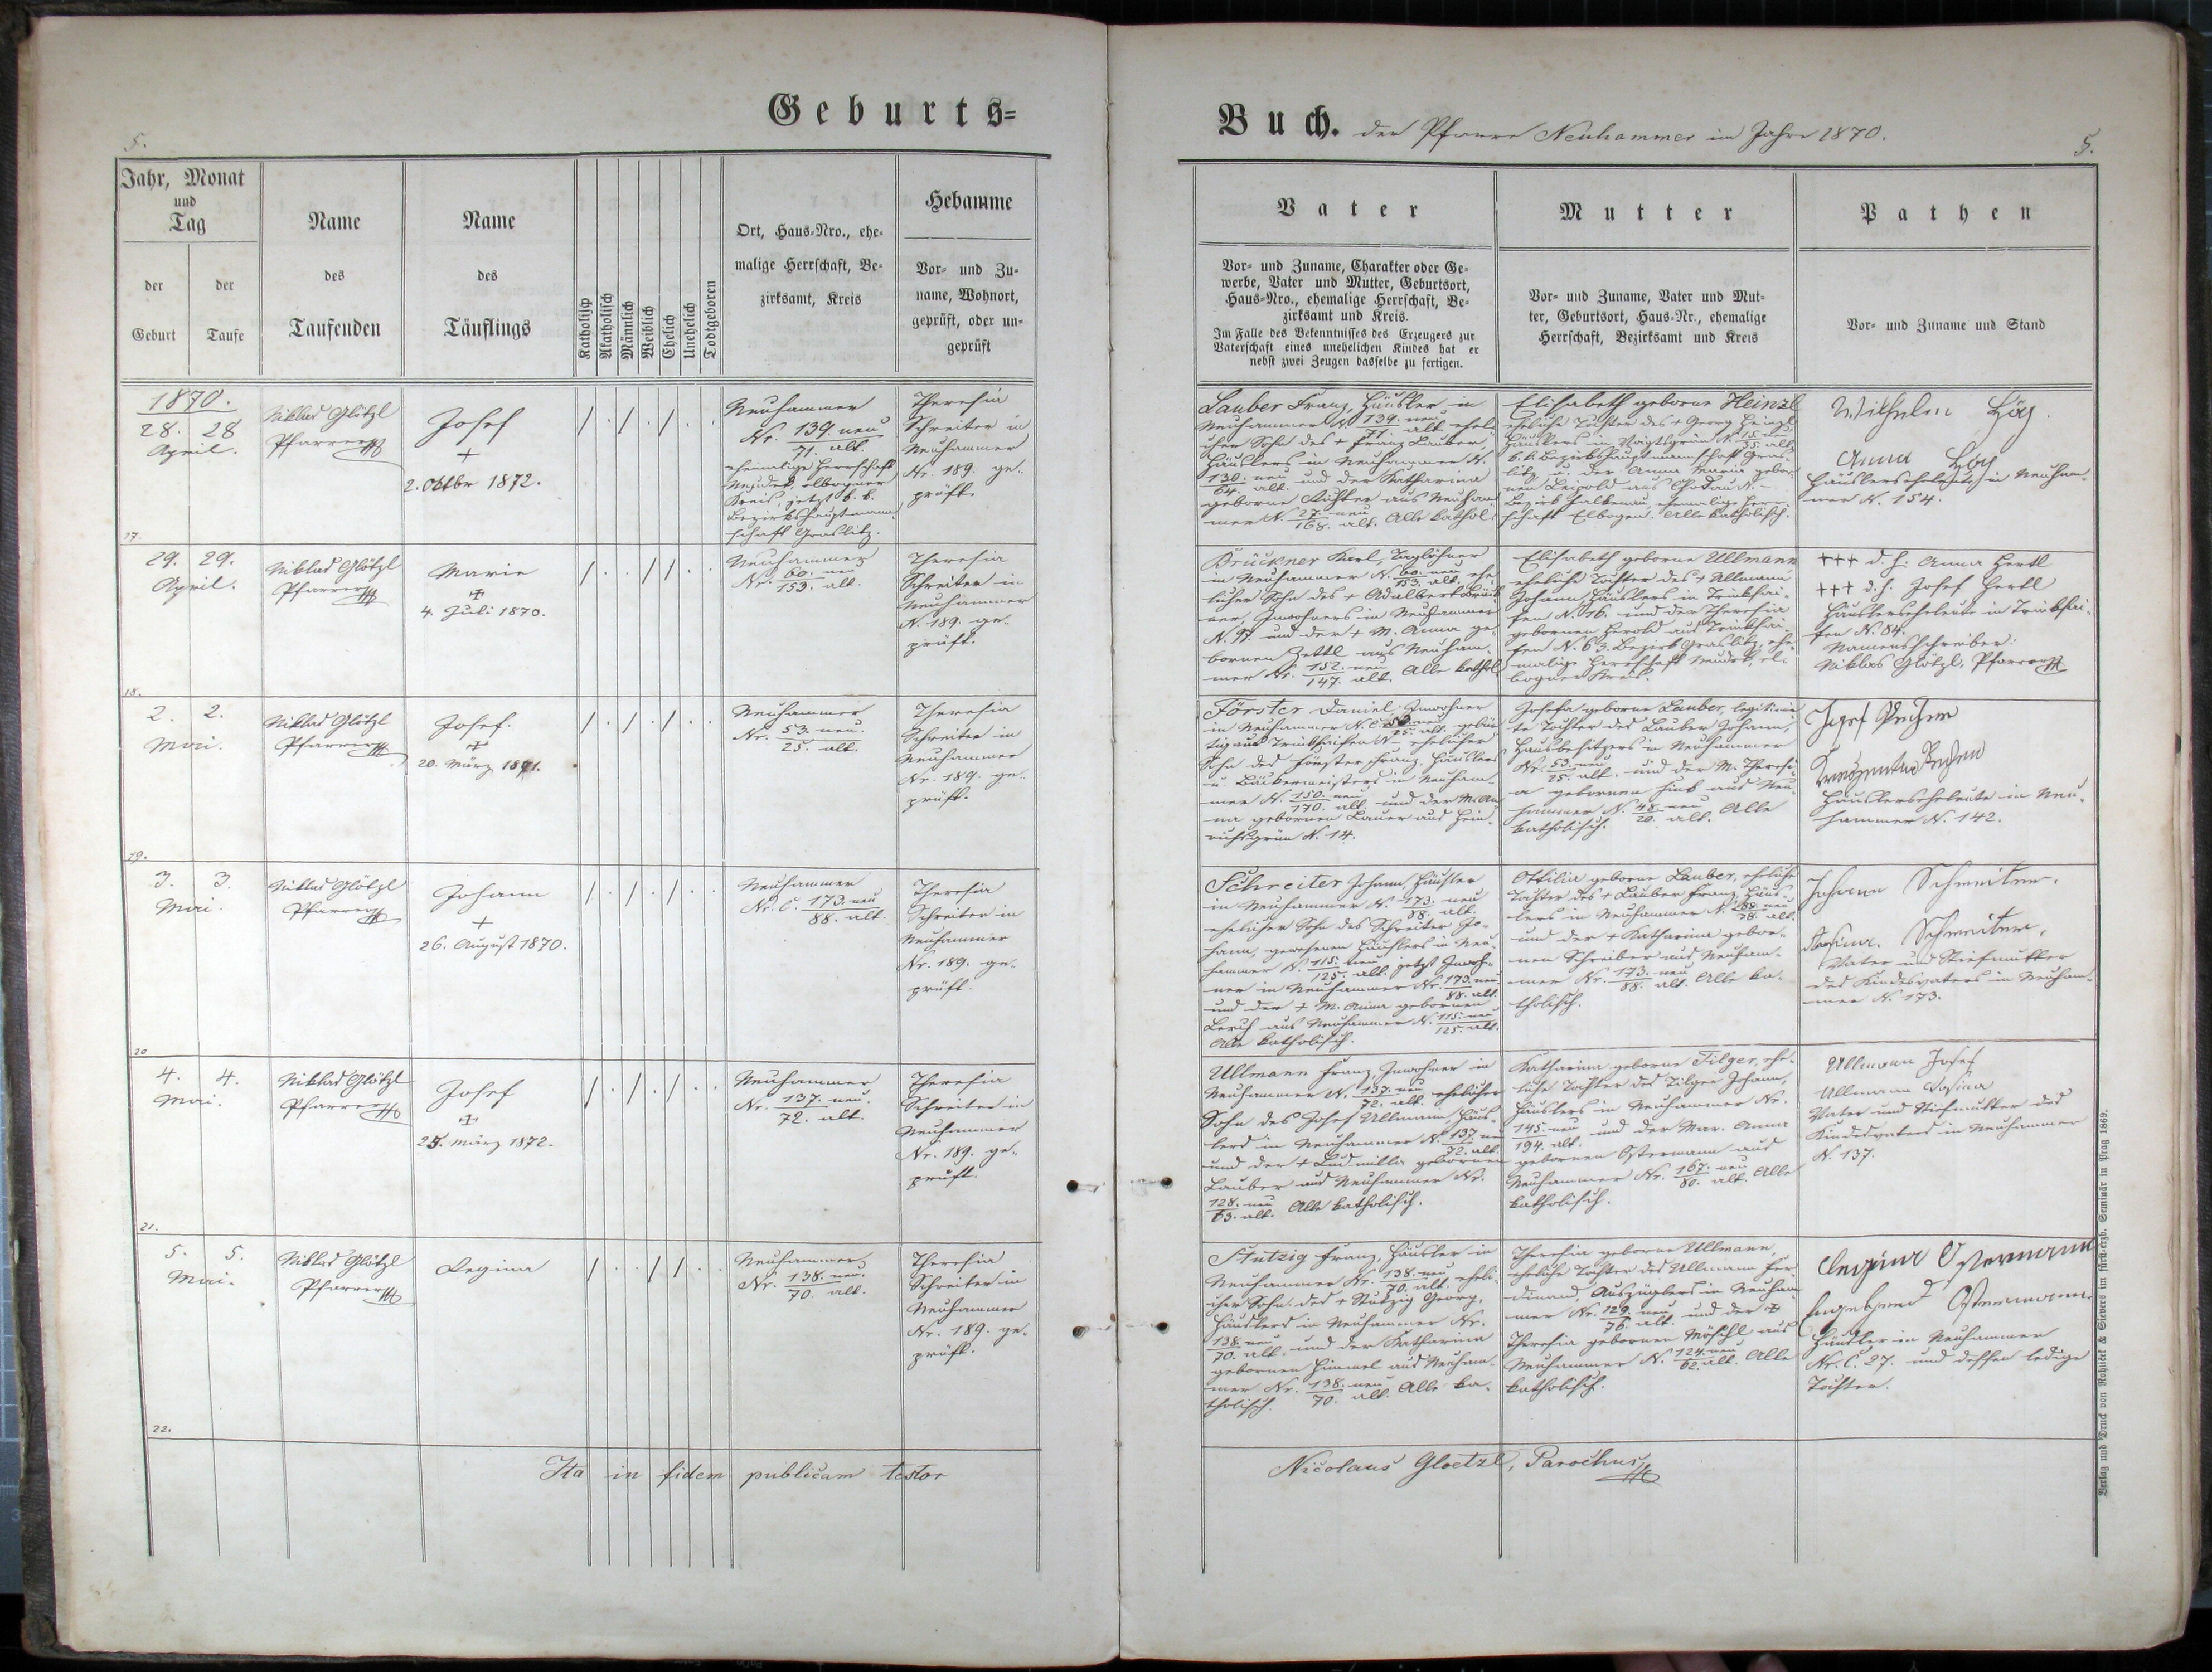 Geburts=
Buch. der Pfarre Neuhammer im Jahre 1870.
5.
5.
Jahr, Monat
und
Tag
der
Geburt
der
Taufe
Name
des
Taufenden
Name
des
Täuflings
Katholisch
Akatholisch
Männlich
Weiblich
Ehelich
Unehelich
Todtgeboren
Ort, Haus-Nro., ehe-
malige Herrschaft, Be-
zirksamt, Kreis
Hebamme
Vor- und Zu-
name, Wohnort,
geprüft, oder un-
geprüft
Vater
Vor- und Zuname, Charakter oder Ge-
werbe, Vater und Mutter, Geburtsort,
Haus-Nro., ehemalige Herrschaft, Be-
zirksamt und Kreis.
Im Falle des Bekenntnisses des Erzeugers zur
Vaterschaft eines unehelichen Kindes hat er
nebst zwei Zeugen dasselbe zu fertigen.
Mutter
Vor- und Zuname, Vater und Mut-
ter, Geburtsort, Haus-Nr., ehemalige
Herrschaft, Bezirksamt und Kreis
Pathen
Vor- und Zuname und Stand
1870.
28. 28
April.
17.
Niklas Glötzl
Pfarrer
Josef
+
2. Oktbr 1872.
Neuhammer
Nr. 139. neu
71. alt.
ehemalige Herrschaft
Neudek, elbogner
Kreis, jetzt k. k.
Bezirkshauptmann-
schaft Graslitz.
Theresia
Schreiter in
Neuhammer
Nr. 189. ge-
prüft.
Lauber Franz, Häusler in
Neuhammer N. 139. neu
71. alt. eheli-
cher Sohn des + Franz Lauber
Häuslers in Neuhammer N.
130. neu
64. alt. und der Katharina
geborne Richter aus Neuham-
mer N. 27. neu
168. alt. Alle kathol.
Elisabeth geborne Heinzl
eheliche Tochter des + Georg Heinzl
Häuslers in Voigtsgrün N. 15. neu
35. alt.
k. k. Bezirkshauptmannschaft Gras-
litz u. der Anna Maria gebor-
nen Leipold aus Chodau N. –
Bezirk Falkenau, ehemalige Herr-
schaft Elbogen. Alle katholisch.
Wilhelm
Anna
Häuslerseheleute in Neuham-
mer N. 154.
29. 29.
April.
18.
Niklas Glötzl
Pfarrer
Marie
+
4. Juli 1870.
Neuhammer
Nr. 60. neu
153. alt.
Theresia
Schreiter in
Neuhammer
N. 189. ge-
prüft.
Brückner Karl, Taglöhner
in Neuhammer N. 60. neu
153. alt. ehe-
licher Sohn des + Adalbert Brück-
ner, Inwohners in Neuhammer
N. 97. und der + M. Anna ge-
bornen Zettl aus Neuham-
mer Nr. 152. neu
147. alt. Alle kathol.
Elisabeth geborne Ullmann
eheliche Tochter des + Ullmann
Johann Häuslers in Trinksai-
fen N. 16. und der Theresia
gebornen Herold aus Trinksai-
fen N. 63. Bezirk Graslitz, ehe-
malige Herrschaft Neudek, el-
bogner Kreis.
+++ d. h. Anna Hertl
+++ d. h. Josef Hertl
Häuslerseheleute in Trinksai-
fen N. 84.
Namensschreiber:
Niklas Glötzl, Pfarrer
2. 2.
Mai.
19.
Niklas Glötzl
Pfarrer
Josef.
+
20. März 1871.
Neuhammer
Nr. 53. neu.
25. alt.
Theresia
Schreiter in
Neuhammer
Nr. 189. ge-
prüft.
Förster Daniel, Inwohner
in Neuhammer N. C. 53. neu
25. alt. gebür-
tig aus Trinksaifen N – ehelicher
Sohn des Förster Franz, Häuslers
u. Bäckermeisters in Neuham-
mer N. 150. neu
170. alt. und der M. An-
na gebornen Bauer aus Hein-
richsgrün N. 14.
Josefa geborne Lauber, legitimir-
te Tochter des Lauber Johann,
Hausbesitzers in Neuhammer
Nr. 53. neu
25. alt. und der M. Theresi-
a gebornen Fink aus Neu-
hammer N. 48. neu
20. alt. Alle
katholisch.
Josef
Häuslerseheleute in Neu-
hammer N. 142.
3. 3.
Mai.
20
Niklas Glötzl
Pfarrer
Johann
+
26. August 1870.
Neuhammer
Nr. C. 173. neu
88. alt.
Theresia
Schreiter in
Neuhammer
Nr. 189. ge-
prüft.
Schreiter Johann, Häusler
in Neuhammer N. 173. neu
88. alt.
ehelicher Sohn des Schreiter Jo-
hann, gewesenen Häuslers in Neu-
hammer N. 115. neu
125. alt. jetzt Inwoh-
ner in Neuhammer Nr. 173. neu
88. alt.
und der + M. Anna gebornen
Lerch aus Neuhammer N. 115. neu
125. alt.
Alle katholisch.
Ottilia geborne Lauber, eheliche
Tochter des + Lauber Franz Häus-
lers in Neuhammer N.
und der + Katharina gebor-
nen Schreiber aus Neuham-
mer Nr. 173. neu
88. alt. Alle ka-
tholisch.
Johann Schreiter.
Schreiter,
Vater und Stiefmutter
des Kindesvaters in Neuham-
mer N. 173.
4. 4.
Mai.
21.
Niklas Glötzl
Pfarrer
Josef
+
25. März 1872.
Neuhammer
Nr. 137. neu.
72. alt.
Theresia
Schreiter in
Neuhammer
Nr. 189. ge-
prüft.
Ullmann Franz, Inwohner in
Neuhammer N. 137. neu
72. alt. ehelicher
Sohn des Josef Ullmann, Häus-
lers in Neuhammer N. 137. neu
72. alt.
und der + Ludmilla gebornen
Lauber aus Neuhammer Nr.
128. neu
63. alt. Alle katholisch.
Katharina geborne Tilger, ehe-
liche Tochter des Tilger Johann,
Häuslers in Neuhammer Nr.
145. neu
194. alt. und der Mar. Anna
gebornen Ostermann aus
Neuhammer Nr. 167. neu
80. alt. Alle
katholisch.
Ullmann Josef
Ullmann Rosina
Vater und Stiefmutter des
Kindesvaters in Neuhammer
N. 137.
5. 5.
Mai.
22.
Niklas Glötzl
Pfarrer
Regina
Neuhammer
Nr. 138. neu.
70. alt.
Theresia
Schreiter in
Neuhammer
Nr. 189. ge-
prüft.
Stutzig Franz, Häusler in
Neuhammer Nr. 138. neu
70. alt. eheli-
cher Sohn des + Stutzig Georg,
Häuslers in Neuhammer Nr.
138. neu
70. alt. und der Katharina
gebornen Himmel aus Neuham-
mer Nr. 138. neu
70. alt. Alle ka-
tholisch.
Theresia geborne Ullmann,
eheliche Tochter des Ullmann Fer-
dinand, Auszüglers in Neuham-
mer Nr. 129. neu
76. alt. und der +
Theresia gebornen Möschl aus
Neuhammer N. 124. neu
62. alt. Alle
katholisch.
Regina Ostermann
Ostermann
Häusler in Neuhammer
Nr. C. 27. und dessen ledige
Tochter.
Ita in fidem publicam testor
Nicolaus Gloetzl, Parochus
Verlag und Druck von Rohliček & Sievers im fürst-erzb. Seminär in Prag 1869.